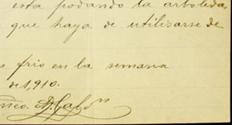 está podando la arboleda
que haya de utilisarse de
frio en la semana
de 1,910.